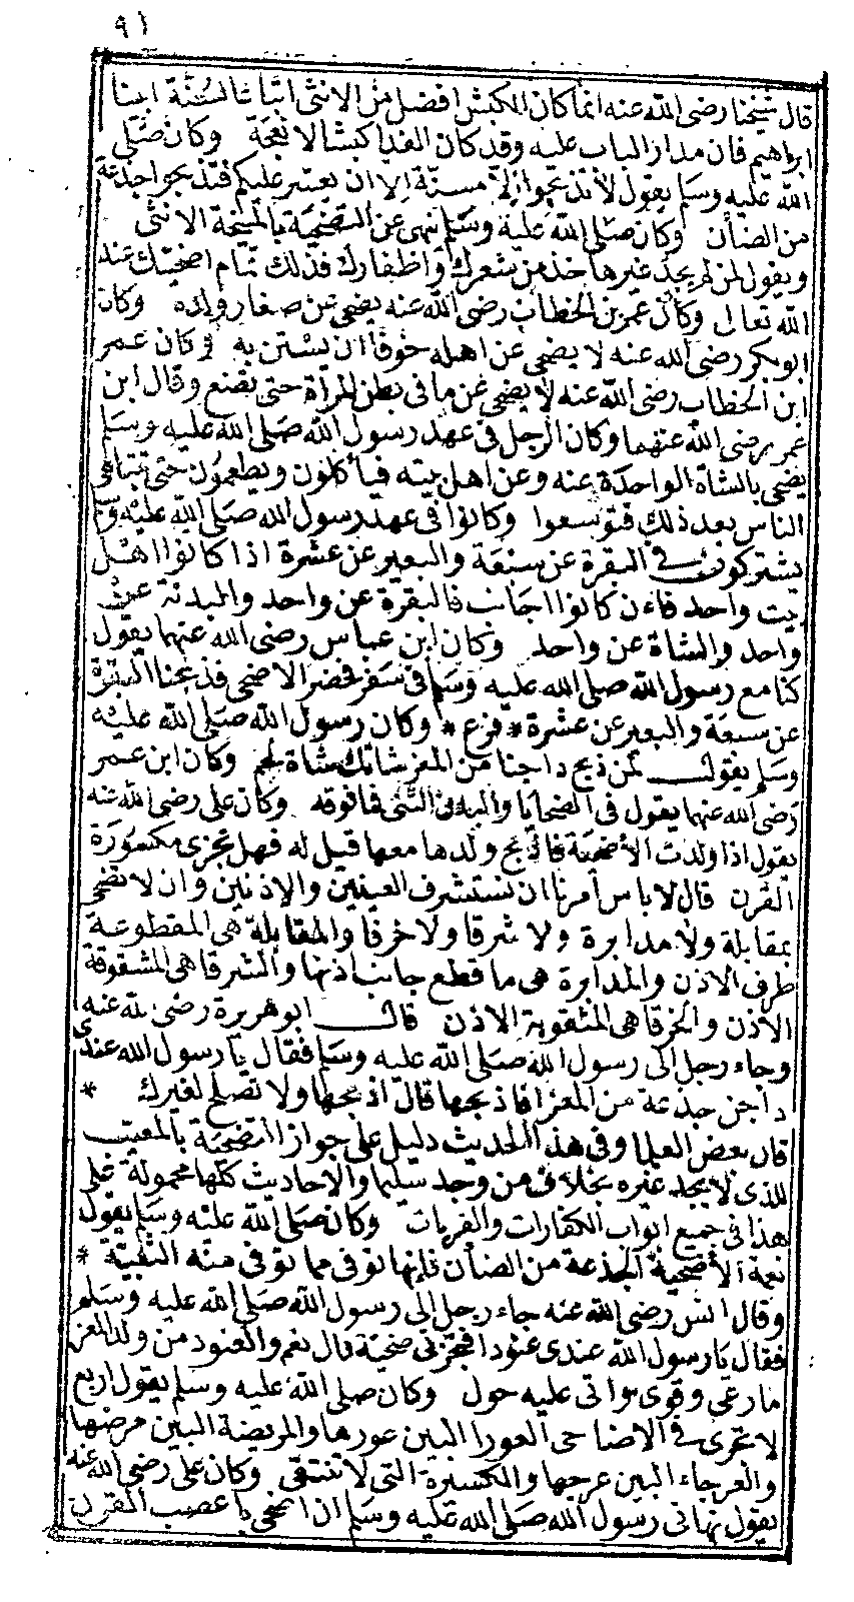 ٩١
قال شيخنا رضي الله عنه انما كان الكبش افضل من الانثى اتباعا لسنة ابينا
ابراهيم فان مدار الباب عليه وقد كان الفدا كبشا لا نعجة وكان صلى
الله عليه وسلم يقول لا تذبحوا الا مسنة الا ان يعسر عليكم فتذبحوا جذعة
من الضأن وكان صلى الله علية وسلم ينهى عن التضحية بالمنيحة الانثى
ويقول لمن لم يجد غيرها خذ من شعرك واظفارك فذلك تمام اضحيتك عند
الله تعالى وكان عمر بن الخطاب رضي الله عنه يضحى عن صغار ولده وكان
ابو بكر رضي الله عنه لا يضحى عن اهله خوفا ان يستن به وكان عمر
ابن الخطاب رضي الله عنه لا يضحى عن ما فى بطن المرأة حتى تضع وقال ابن
عمر رضي الله عنهما وكان الرجل فى عهد رسول الله صلى الله عليه وسلم
يضحى بالشاة الواحدة عنه وعن اهل بيته فيأكلون ويطعمون حتى تباهى
الناس بعد ذلك فتوسعوا وكانوا فى عهد رسول الله صلى الله عليه وسلم
يشتركون فى البقرة عن سبعة والبعير عن عشرة اذا كانوا اهل
بيت واحد فاءن كانوا اجانب فالبقرة عن واحد والبدنة عن
واحد والشاة عن واحد وكان ابن عباس رضي الله عنهما يقول
كنا مع رسول الله صلى الله عليه وسلم فى سفر فحضر الاضحى فذبحنا البقرة
عن سبعة والبعير عن عشرة * فرع * وكان رسول الله صلى الله عليه
وسلم يقول لمن ذبح داجنا من المعز شاتك شاة لحم وكان ابن عمر
رضي الله عنهما يقول فى الضحايا والبدن الثنى فما فوقه وكان على رضي الله عنه
يقول اذا ولدت الأضحية فاذبح ولدها معها قيل له فهل تجزى مكسورة
القرن قال لا باس أمرنا ان نستشرف العينين والاذنين وان لا نضحى
بمقابلة ولا مدابرة ولا شرقا ولا خرقا والمقابلة هى المقطوعة
طرف الاذن والمدابرة هى ما قطع جانب اذنها والشرقا هى المشقوقة
الاذن والخرقا هى المثقوبة الاذن قال ابو هريرة رضي الله عنه
وجاء رجل الى رسول الله صلى الله عليه وسلم فقال يا رسول الله عندى
داجن جذعة من المعز افاذبحها قال اذبحها ولا تصلح لغيرك *
قال بعض العلما وفى هذا الحديث دليل على جواز التضحية بالمعيب
للذى لا يجد غيره بخلاف من وجد سليما والاحاديث كلها محمولة على
هذا فى جميع ابواب الكفارات والقربات وكان صلى الله عليه وسلم يقول
نعمة الأضحية الجذعة من الضأن فإنها توفى مما توفى منه الثنية *
وقال انس رضي الله عنه جاء رجل الى رسول الله صلى الله عليه وسلم
فقال يا رسول الله عندى عنودا فيجزى ضحية قال نعم والعنود من ولد المعز
ما رعى وقوى واتى عليه حول وكان صلى الله عليه وسلم يقول اربع
لا تجزى فى الاضاحى العورا البين عورها والمريضة البين مرضها
والعرجاء البين عرجها والكسيرة التى لا تنقى وكان على رضي الله عنه
يقول نهانى رسول الله صلى الله عليه وسلم ان اضحى باعضب القرن